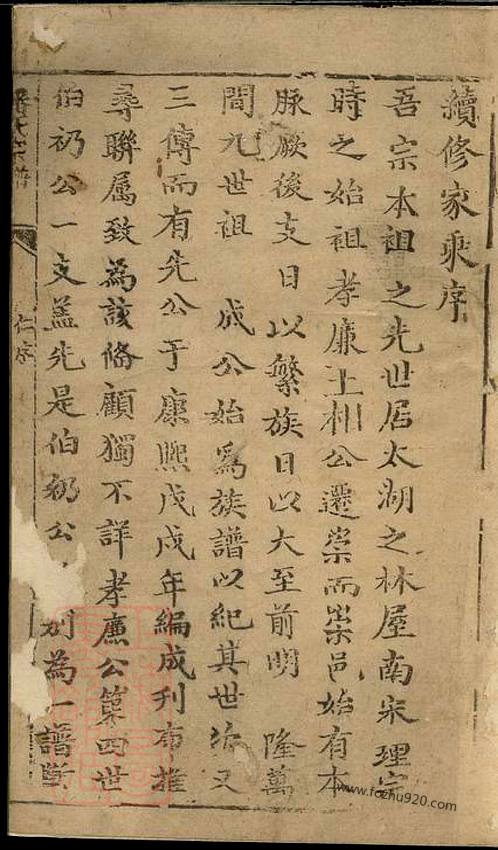 續修家乘序
吾宗本祖之先世居太湖之林屋南宋理宗
時之始祖孝廉上相公遷崇而崇邑始有本
脉厥後支日以繁族日以大至前明 隆萬
間九世祖 成公始爲族譜以紀其世 又
三傳而有先公于康熙戊戌年編成刋布推
尋聯属致為該俻顧獨不詳孝廉公第四世
伯礽公一支盖先是伯礽公 别為一譜斷
氏宗譜
仁序
www.fozhu920.com